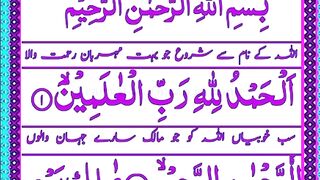 بِسْمِ اللّٰهِ الرَّحْمٰنِ الرَّحِيْمِ
اللہ کے نام سے شروع جو بہت مہربان رحمت والا
اَلْحَمْدُ لِلّٰهِ رَبِّ الْعٰلَمِيْنَ ۙ ﴿۱﴾
سب خوبیاں اللہ کو جو مالک سارے جہان والوں
الرَّحْمٰنِ الرَّحِيْمِ ۙ